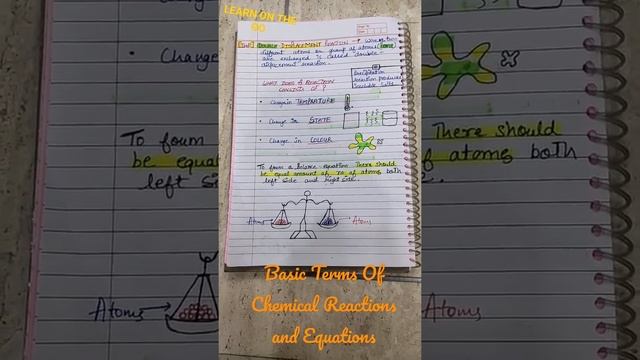 LEARN ON THE
GO
DOUBLE DISPLACEMENT REACTION → When two
different atoms or group of atoms (ions)
are exchanged is called double-
displacement reaction.
Precipitation
reaction produces
insoluble salts
WHAT DOES A REACTION
CONSISTS OF ?
• Change in TEMPRATURE
• Change in STATE
• Change in COLOUR
To form a balance equation There should
be equal amount of no of atoms both
left side and right side.
Atoms
Atoms
Basic Terms Of
Chemical Reactions
and Equations
• Change
To form
be equal
left sid
Atoms
There should
of atoms both
Atoms